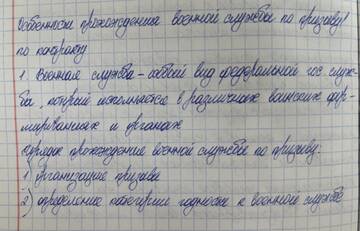 Особенности прохождения военной службы по призыву/
по контракту
1. Военная служба - особый вид федеральной гос. служ-
бы, который исполняется в различных воинских фор-
мированиях и органах
Порядок прохождение военной службы по призыву:
1) Организация призыва
2) определение категории годности к военной службе